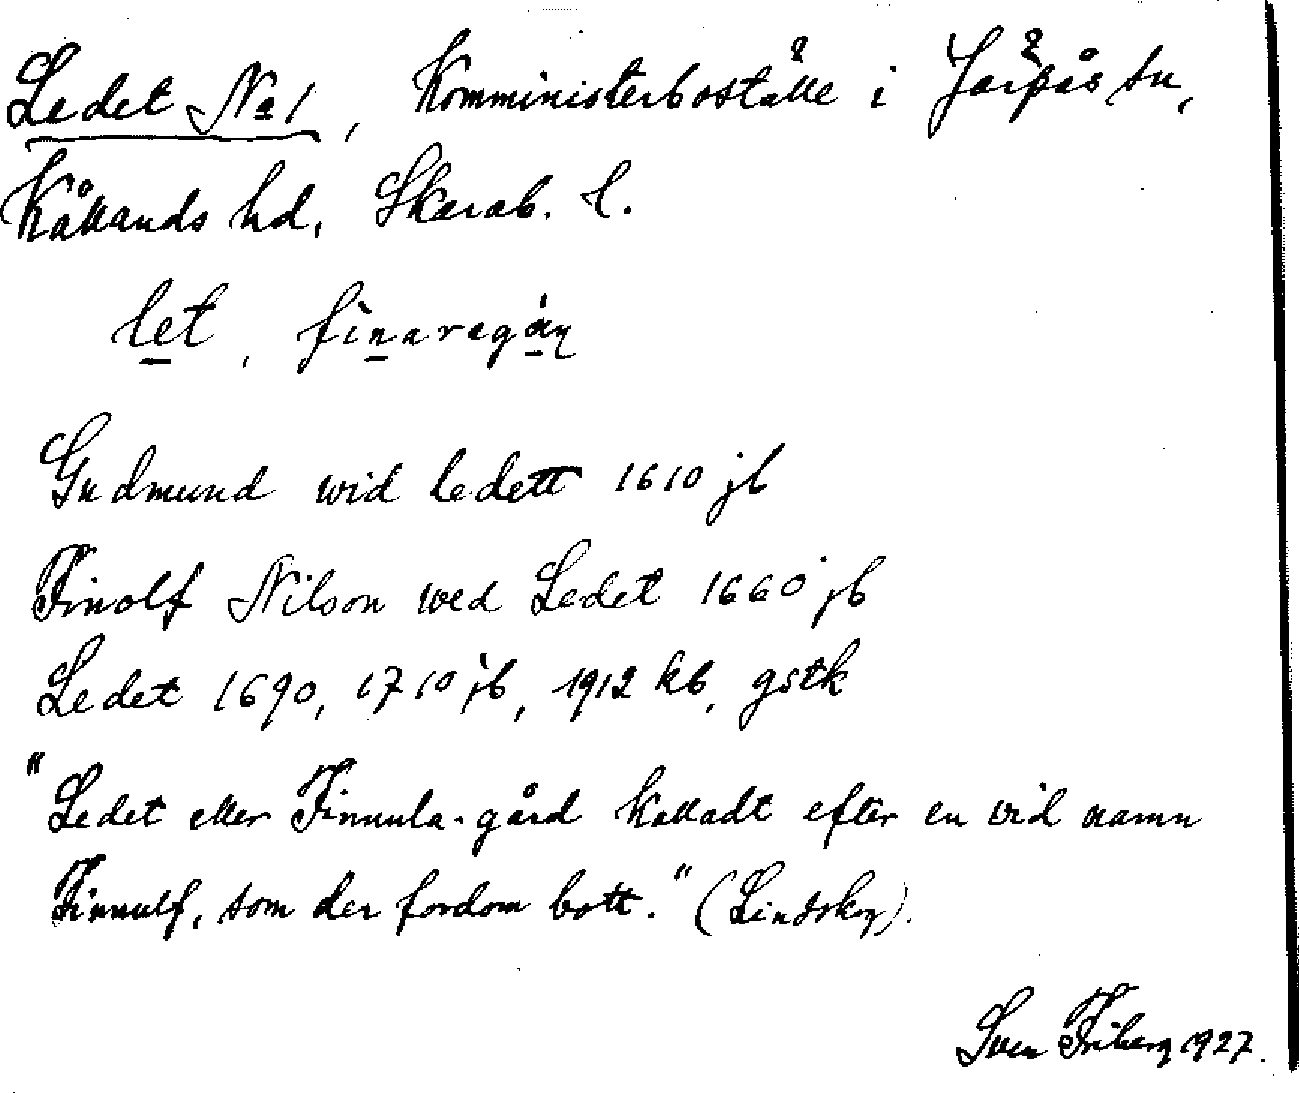 Ledet No 1, Komministerboställe i Järpås sn,
Kållands hd, Skarab. l.
let, finaregån
Gudmund wid ledett 1610 jb
Finolf Nilson wed Ledet 1660 jb
Ledet 1690, 1710 jb, 1912 kb, gstk
"Ledet eller Finnula-gård kalladt efter en vid namn
Finnulf, som der fordom bott." (Lindskog).
Sven Friberg 1927.